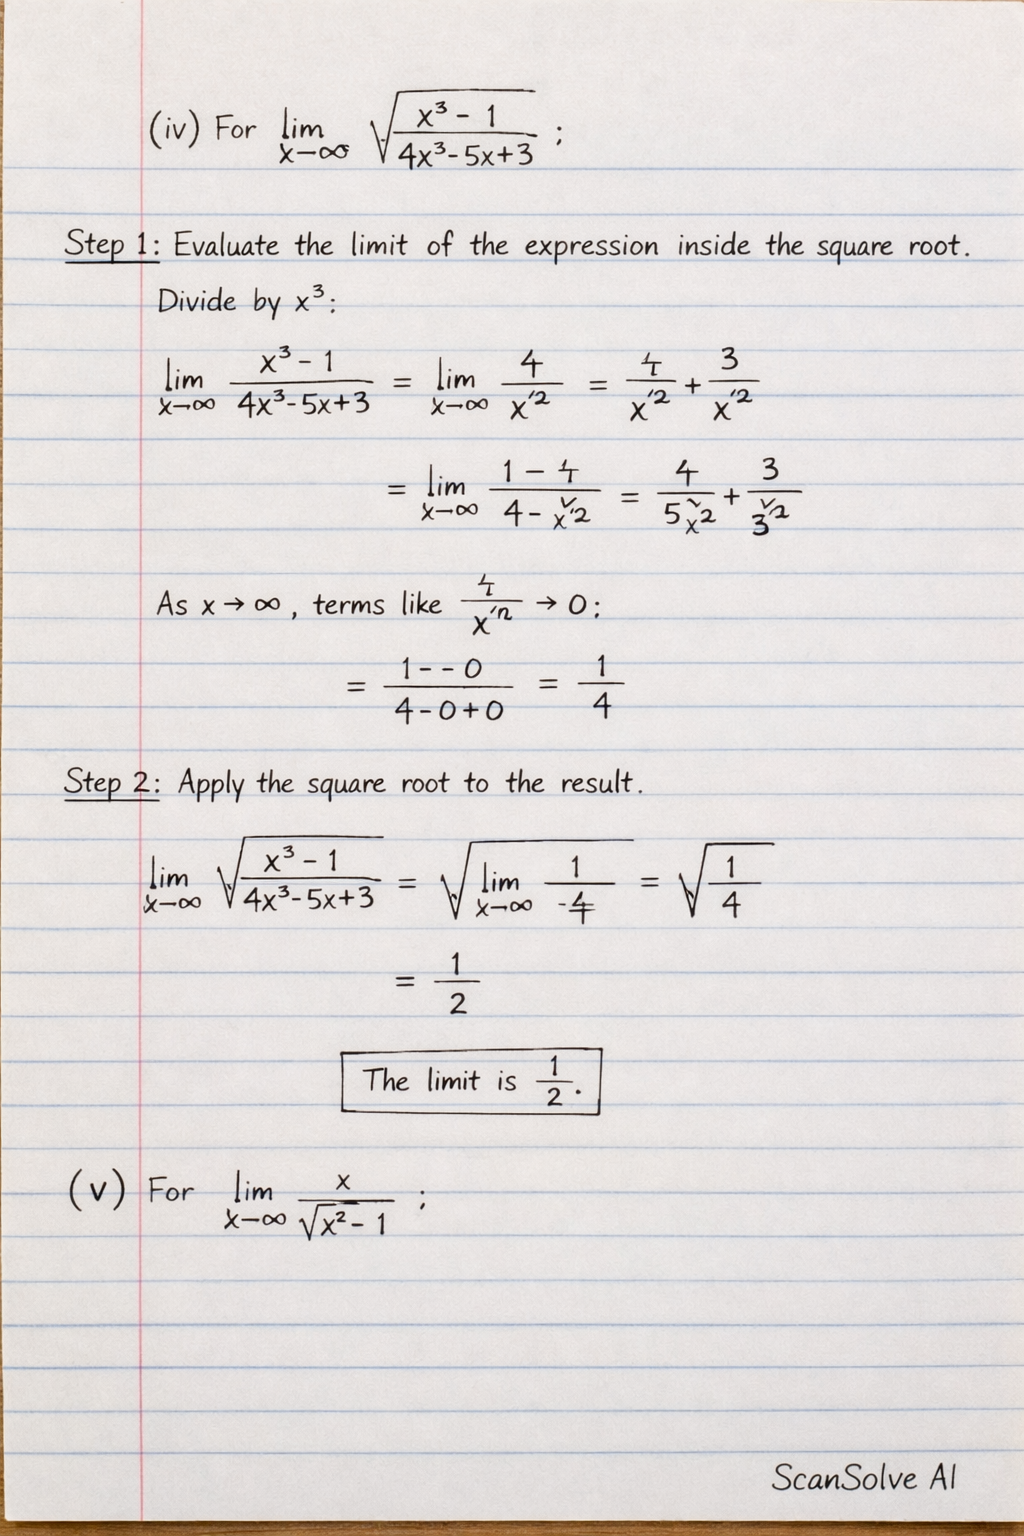 (iv) For lim x→∞ √((x³ - 1)/(4x³-5x+3)) ;
Step 1: Evaluate the limit of the expression inside the square root.
Divide by x³:
lim x→∞ (x³ - 1)/(4x³-5x+3) = lim x→∞ 4/x'² = 4/x'² + 3/x'²
= lim x→∞ (1 - 4)/(4 - x'2) = 4/(5x2) + 3/
As x → ∞, terms like 4/x'ⁿ → 0:
= (1 - - 0)/(4 - 0 + 0) = 1/4
Step 2: Apply the square root to the result.
lim x→∞ √((x³ - 1)/(4x³-5x+3)) = √(lim x→∞ 1/-4) = √(1/4)
= 1/2
The limit is 1/2.
(v) For lim x→∞ x/√x² - 1 ;
ScanSolve AI